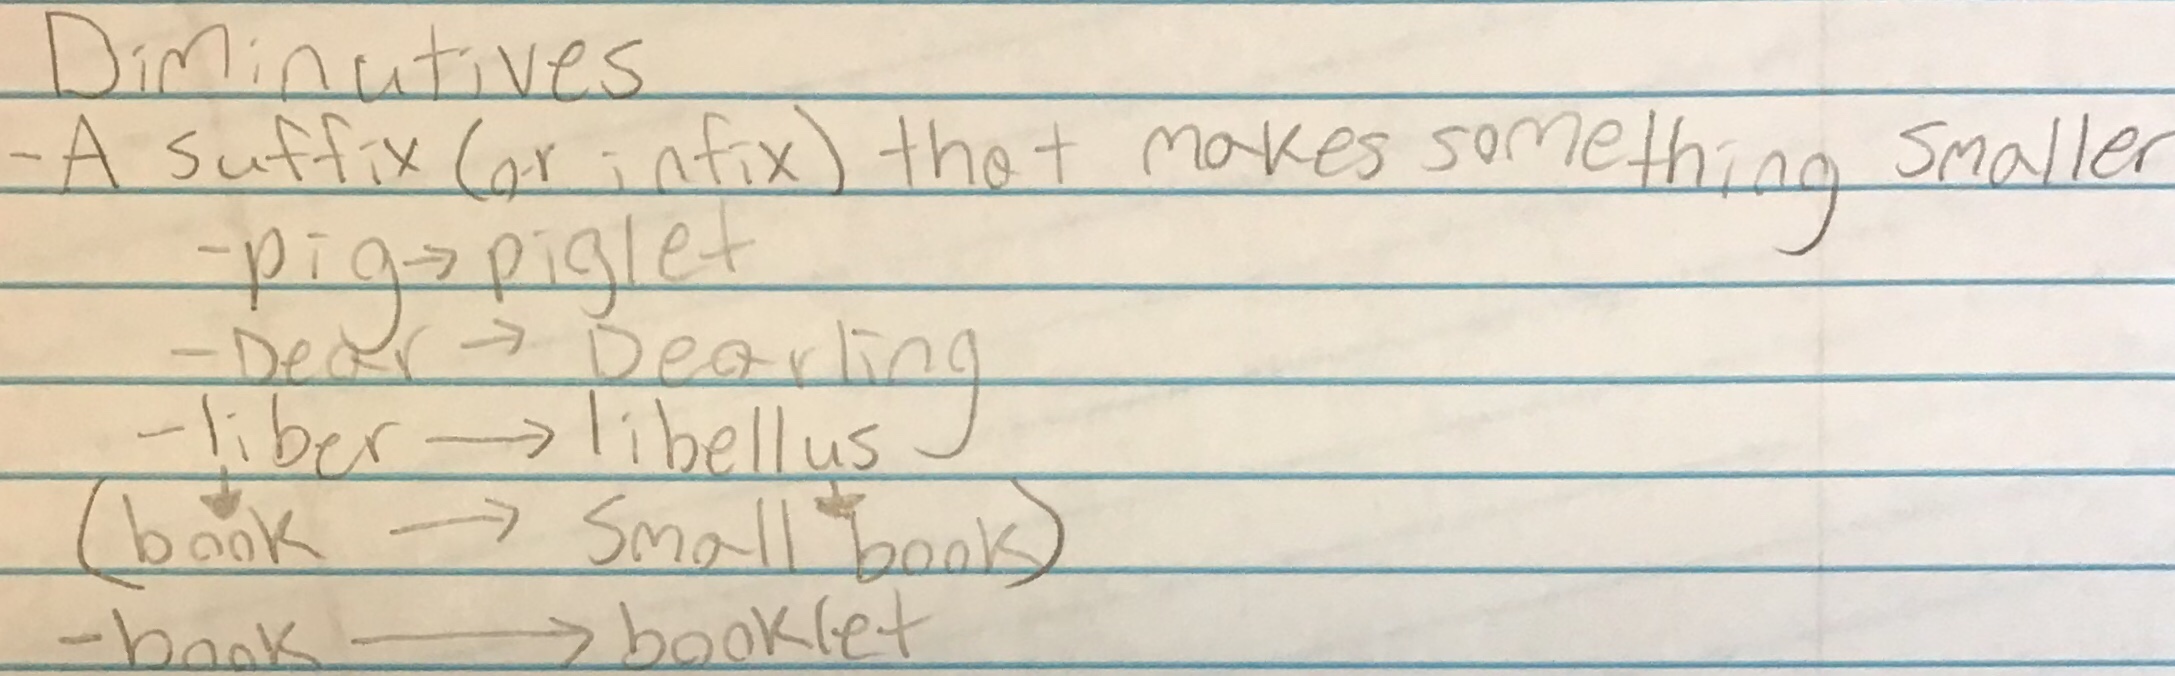 Diminutives
-A suffix (or infix) that makes something smaller
-pig→piglet
-Dear → Dearling
-liber → libellus
(book → Small book)
-book → booklet